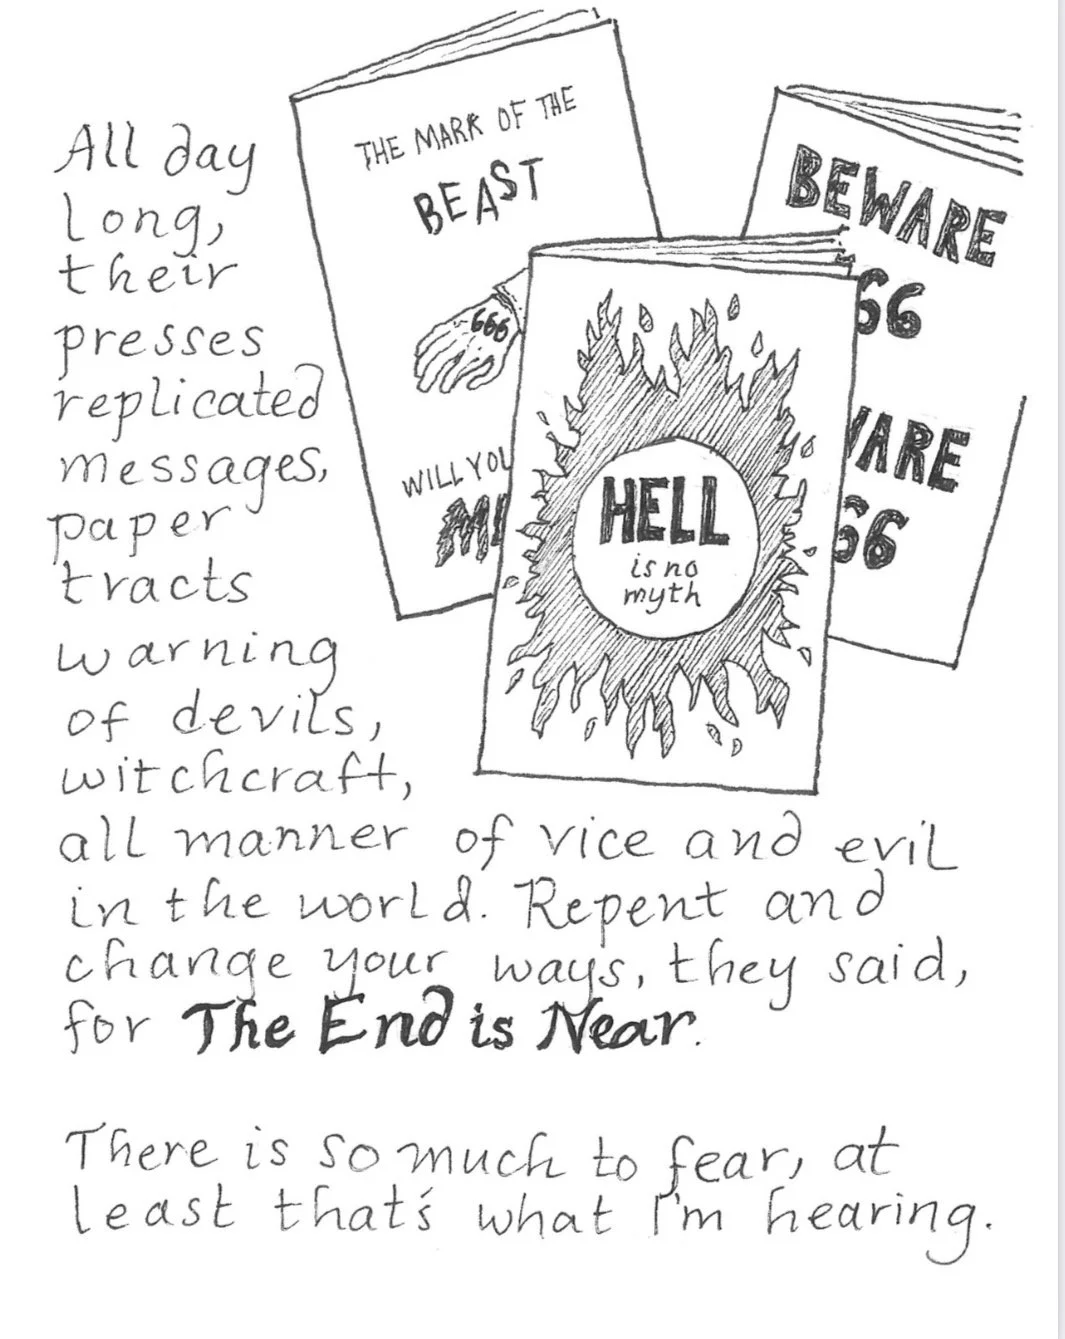 THE MARK OF THE
BEAST
666
WILL YOU
BEWARE
66
66
HELL
is no
myth
All day
long,
their
presses
replicated
messages,
paper
tracts
warning
of devils,
witchcraft,
all manner of vice and evil
in the world. Repent and
change your ways, they said,
for The End is Near.
There is so much to fear, at
least that's what I'm hearing.